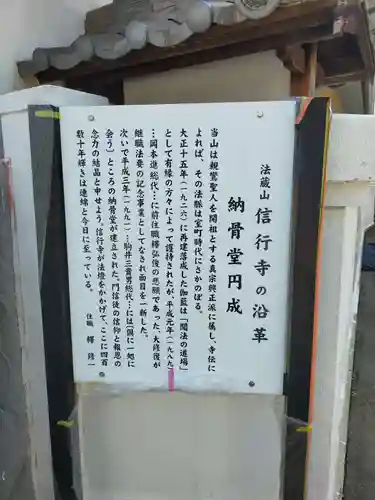 法蔵山 信行寺の沿革
納骨堂円成
当山は親鸞聖人を開祖とする真宗興正派に属し、寺伝に
よれば、その法脈は室町時代にさかのぼる。
大正十五年(一九二六)に再建落成した伽藍は「聞法の道場」
として有縁の方々によって護持されたが、平成元年(一九八九)
…岡本進総代…に前住職釋弘俊の悲願であった、大修復が
継職法要の記念事業としてなされ面目を一新した。
次いで平成三年(一九九一)…駒井三貴男総代…には(倶に一処に
会う)ところの納骨堂が建立された。門信徒の信仰と報恩の
念力の結晶と申せよう。信行寺が法燈をかかげて、ここに四百
数十年輝きは連綿と今日に至っている。
住職 釋 隆一